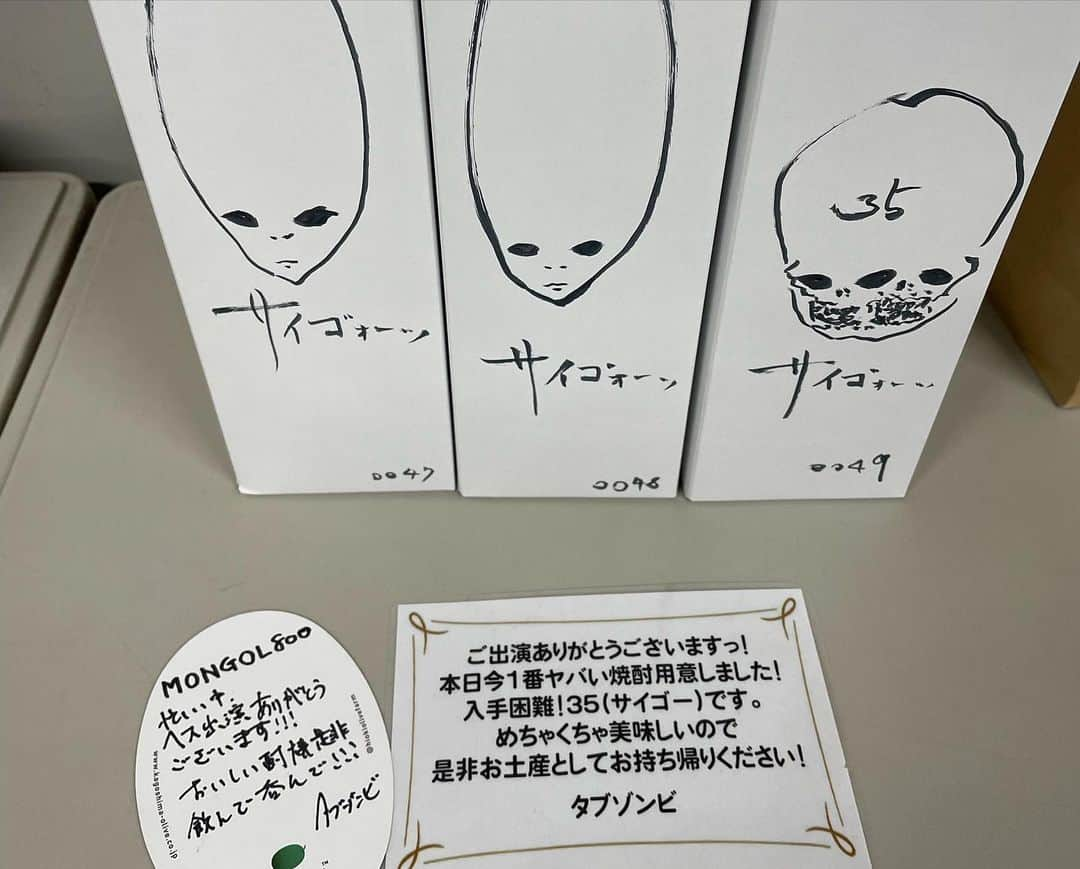 35
サイゴォーッ
サイゴォーッ
サイゴォーッ
0047
0048
0049
MONGOL800
忙しい中、
ヘス出演ありがとう
ございます!!!
おいしい酎機是非
飲んで呑んで!!!
タブゾンビ
www.kagoshima-olive.co.jp
@hiokiolivefarm
ご出演ありがとうございますっ!
本日今1番ヤバい焼酎用意しました!
入手困難!35(サイゴー)です。
めちゃくちゃ美味しいので
是非お土産としてお持ち帰りください!
タブゾンビ